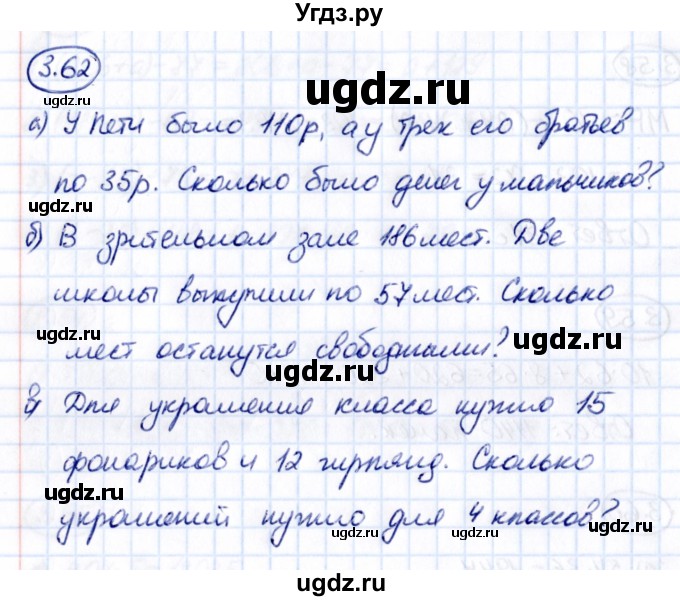 Угдз.ру
3.62
ugdz.ru
ugdz.ru
а) У Пети было 110р, а у трех его братьев
ugdz.ru
по 35р. Сколько было денег у мальчиков?
ugdz.ru
ugdz.ru
б) В зрительном зале 186 мест. Две
школы выкупили по 57 мест. Сколько
ugdz.ru
ugdz.ru
мест останутся свободными?
ugdz.ru
в) Для украшения класса нужно 15
ugdz.ru
фонариков и 12 гирлянд. Сколько
ugdz.ru
ugdz.ru
украшений нужно для 4 классов?
ugdz.ru
ugdz.ru
ugdz.ru